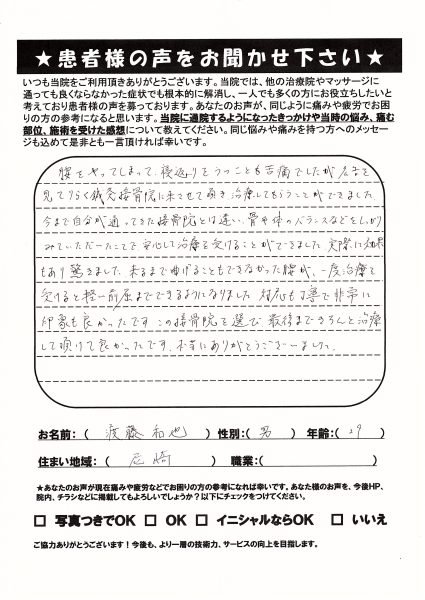 ★患者様の声をお聞かせ下さい★
いつも当院をご利用頂きありがとうございます。当院では、他の治療院やマッサージに
通っても良くならなかった症状でも根本的に解消し、一人でも多くの方にお役立ちしたいと
考えており患者様の声を募っております。あなたのお声が、同じように痛みや疲労でお困
りの方の参考になると思います。当院に通院するようになったきっかけや当時の悩み、痛む
部位、施術を受けた感想について教えてください。同じ悩みや痛みを持つ方へのメッセー
ジも込めて是非とも一言頂ければ幸いです。
腰をやってしまって、寝返りをうつことも苦痛でしたが
見て 鍼灸接骨院に来させて頂き治療してもらうことができました
今まで自分が通ってきた接骨院とは違い、骨や体のバランスなどをしっかり
みていただいたことで安心して治療を受けることができました 実際に効果
もあり驚きました。来るまで曲げることもできなかった腰が、一度治療を
受けると軽い前屈までできるようになりました 対応も丁寧で非常に
印象も良かったです この接骨院を選び、最後まできちんと治療
して頂けて良かったです。本当にありがとうございました。
お名前：（ 渡藤和也 ）性別：（ 男 ）年齢：（ 29 ）
住まい地域：（ 尼崎 ）職業：（ ）
★あなたのお声が現在痛みや疲労などでお困りの方の参考になれば幸いです。あなた様のお声を、今後HP、
院内、チラシなどに掲載してもよろしいでしょうか？以下にチェックをつけてください。
□ 写真つきでOK □ OK □ イニシャルならOK □ いいえ
ご協力ありがとうございます！今後も、より一層の技術力、サービスの向上を目指します。